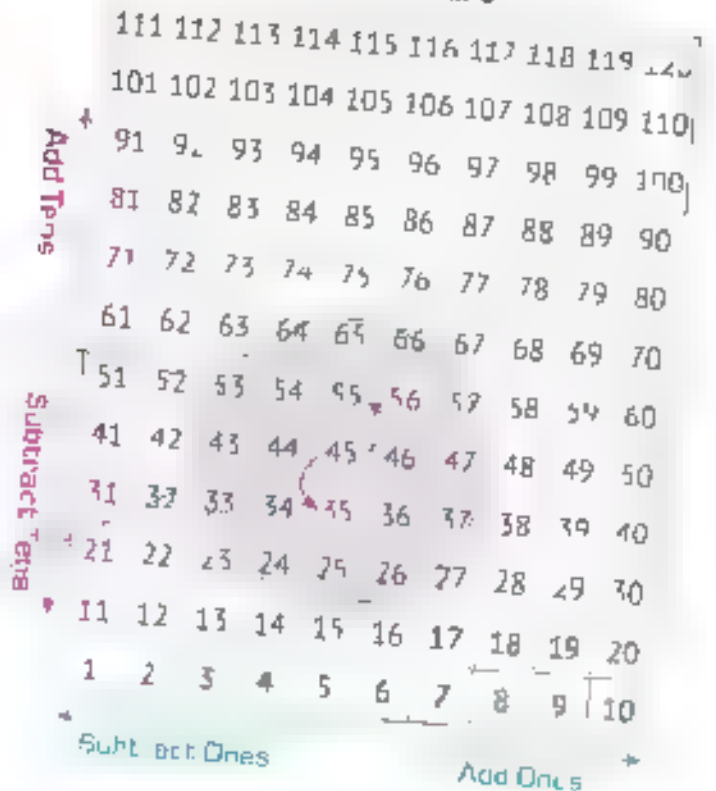 111 112 113 114 115 116 117 118 119
101 102 103 104 105 106 107 108 109 110
91 93 94 95 96 97 98 99 100
81 82 83 84 85 86 87 88 89 90
71 72 73 74 75 76 77 78 79 80
61 62 63 64 65 66 67 68 69 70
51 52 53 54 55 56 57 58 59 60
41 42 43 44 45 46 47 48 49 50
31 32 33 34 35 36 37 38 39 40
21 22 23 24 25 26 27 28 29 30
11 12 13 14 15 16 17 18 19 20
1 2 3 4 5 6 7 8 9 10
Add Tens
Subtract Tens
Subtract Ones
Add Ones